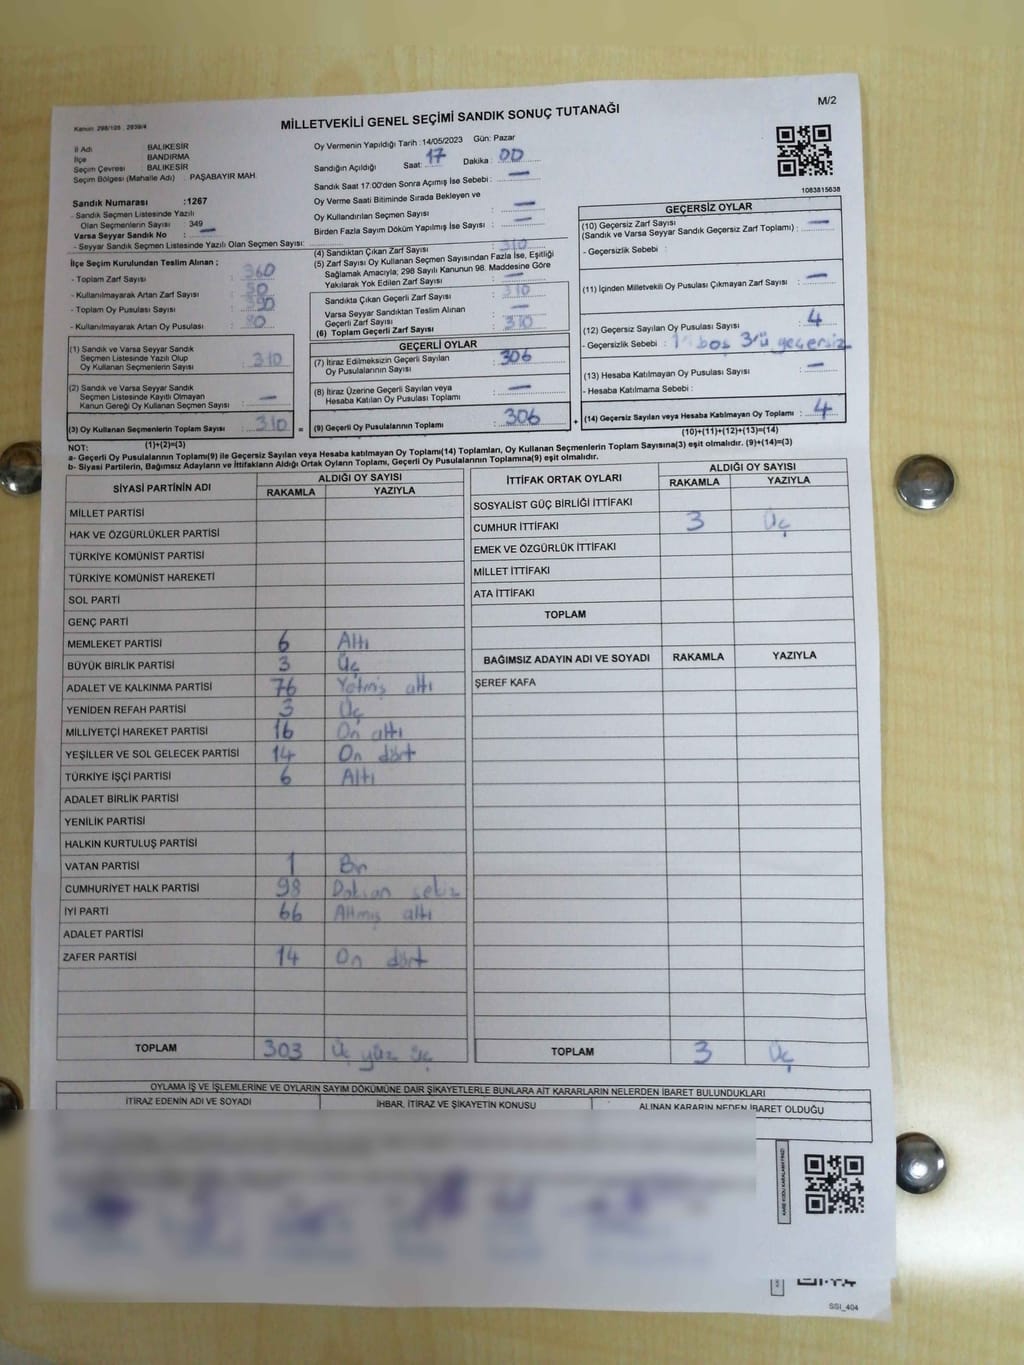 M/2
Kanun: 298/105 , 2839/4
MİLLETVEKİLİ GENEL SEÇİMİ SANDIK SONUÇ TUTANAĞI
İl Adı BALIKESİR
İlçe BANDIRMA
Seçim Çevresi BALIKESİR
Seçim Bölgesi (Mahalle Adı) : PAŞABAYIR MAH.
Sandık Numarası :1267
- Sandık Seçmen Listesinde Yazılı
Olan Seçmenlerin Sayısı : 349
Varsa Seyyar Sandık No : —
- Seyyar Sandık Seçmen Listesinde Yazılı Olan Seçmen Sayısı:
Oy Vermenin Yapıldığı Tarih : 14/05/2023 Gün: Pazar
Sandığın Açıldığı Saat: 17 Dakika : 00
Sandık Saat 17:00'den Sonra Açımış İse Sebebi : —
Oy Verme Saati Bitiminde Sırada Bekleyen ve
Oy Kullandırılan Seçmen Sayısı : —
Birden Fazla Sayım Döküm Yapılmış İse Sayısı : —
1083815638
İlçe Seçim Kurulundan Teslim Alınan ;
- Toplam Zarf Sayısı : 360
- Kullanılmayarak Artan Zarf Sayısı : 50
- Toplam Oy Pusulası Sayısı :
- Kullanılmayarak Artan Oy Pusulası :
(1) Sandık ve Varsa Seyyar Sandık
Seçmen Listesinde Yazılı Olup
Oy Kullanan Seçmenlerin Sayısı : 310
(2) Sandık ve Varsa Seyyar Sandık
Seçmen Listesinde Kayıtlı Olmayan
Kanun Gereği Oy Kullanan Seçmen Sayısı : —
(3) Oy Kullanan Seçmenlerin Toplam Sayısı : 310 =
(1)+(2)=(3)
(4) Sandıktan Çıkan Zarf Sayısı : 310
(5) Zarf Sayısı Oy Kullanan Seçmen Sayısından Fazla İse, Eşitliği
Sağlamak Amacıyla; 298 Sayılı Kanunun 98. Maddesine Göre
Yakılarak Yok Edilen Zarf Sayısı : —
Sandıkta Çıkan Geçerli Zarf Sayısı : 310
Varsa Seyyar Sandıktan Teslim Alınan
Geçerli Zarf Sayısı : —
(6) Toplam Geçerli Zarf Sayısı : 310
GEÇERLİ OYLAR
(7) İtiraz Edilmeksizin Geçerli Sayılan
Oy Pusulalarının Sayısı : 306
(8) İtiraz Üzerine Geçerli Sayılan veya
Hesaba Katılan Oy Pusulası Toplamı : —
(9) Geçerli Oy Pusulalarının Toplamı : 306 +
GEÇERSİZ OYLAR
(10) Geçersiz Zarf Sayısı
(Sandık ve Varsa Seyyar Sandık Geçersiz Zarf Toplamı) : —
- Geçersizlik Sebebi :
(11) İçinden Milletvekili Oy Pusulası Çıkmayan Zarf Sayısı : —
(12) Geçersiz Sayılan Oy Pusulası Sayısı : 4
- Geçersizlik Sebebi : boş 3'ü geçersiz
(13) Hesaba Katılmayan Oy Pusulası Sayısı : —
- Hesaba Katılmama Sebebi :
(14) Geçersiz Sayılan veya Hesaba Katılmayan Oy Toplamı : 4
(10)+(11)+(12)+(13)=(14)
NOT:
a- Geçerli Oy Pusulalarının Toplamı(9) ile Geçersiz Sayılan veya Hesaba katılmayan Oy Toplamı(14) Toplamları, Oy Kullanan Seçmenlerin Toplam Sayısına(3) eşit olmalıdır. (9)+(14)=(3)
b- Siyasi Partilerin, Bağımsız Adayların ve İttifakların Aldığı Ortak Oyların Toplamı, Geçerli Oy Pusulalarının Toplamına(9) eşit olmalıdır.
SİYASİ PARTİNİN ADI ALDIĞI OY SAYISI
RAKAMLA YAZIYLA
MİLLET PARTİSİ
HAK VE ÖZGÜRLÜKLER PARTİSİ
TÜRKİYE KOMÜNİST PARTİSİ
TÜRKİYE KOMÜNİST HAREKETİ
SOL PARTİ
GENÇ PARTİ
MEMLEKET PARTİSİ 6 Altı
BÜYÜK BİRLİK PARTİSİ 3 Üç
ADALET VE KALKINMA PARTİSİ 76 Yetmiş altı
YENİDEN REFAH PARTİSİ 3 Üç
MİLLİYETÇİ HAREKET PARTİSİ 16 On altı
YEŞİLLER VE SOL GELECEK PARTİSİ 14 On dört
TÜRKİYE İŞÇİ PARTİSİ 6 Altı
ADALET BİRLİK PARTİSİ
YENİLİK PARTİSİ
HALKIN KURTULUŞ PARTİSİ
VATAN PARTİSİ 1 Bir
CUMHURİYET HALK PARTİSİ 98 Doksan sekiz
İYİ PARTİ 66 Altmış altı
ADALET PARTİSİ
ZAFER PARTİSİ 14 On dört
TOPLAM 303 Üç yüz üç
İTTİFAK ORTAK OYLARI ALDIĞI OY SAYISI
RAKAMLA YAZIYLA
SOSYALİST GÜÇ BİRLİĞİ İTTİFAKI
CUMHUR İTTİFAKI 3 Üç
EMEK VE ÖZGÜRLÜK İTTİFAKI
MİLLET İTTİFAKI
ATA İTTİFAKI
TOPLAM
BAĞIMSIZ ADAYIN ADI VE SOYADI RAKAMLA YAZIYLA
ŞEREF KAFA
TOPLAM 3 Üç
OYLAMA İŞ VE İŞLEMLERİNE VE OYLARIN SAYIM DÖKÜMÜNE DAİR ŞİKAYETLERLE BUNLARA AİT KARARLARIN NELERDEN İBARET BULUNDUKLARI
İTİRAZ EDENİN ADI VE SOYADI İHBAR, İTİRAZ VE ŞİKAYETİN KONUSU ALINAN KARARIN NEDEN İBARET OLDUĞU
SSI_404